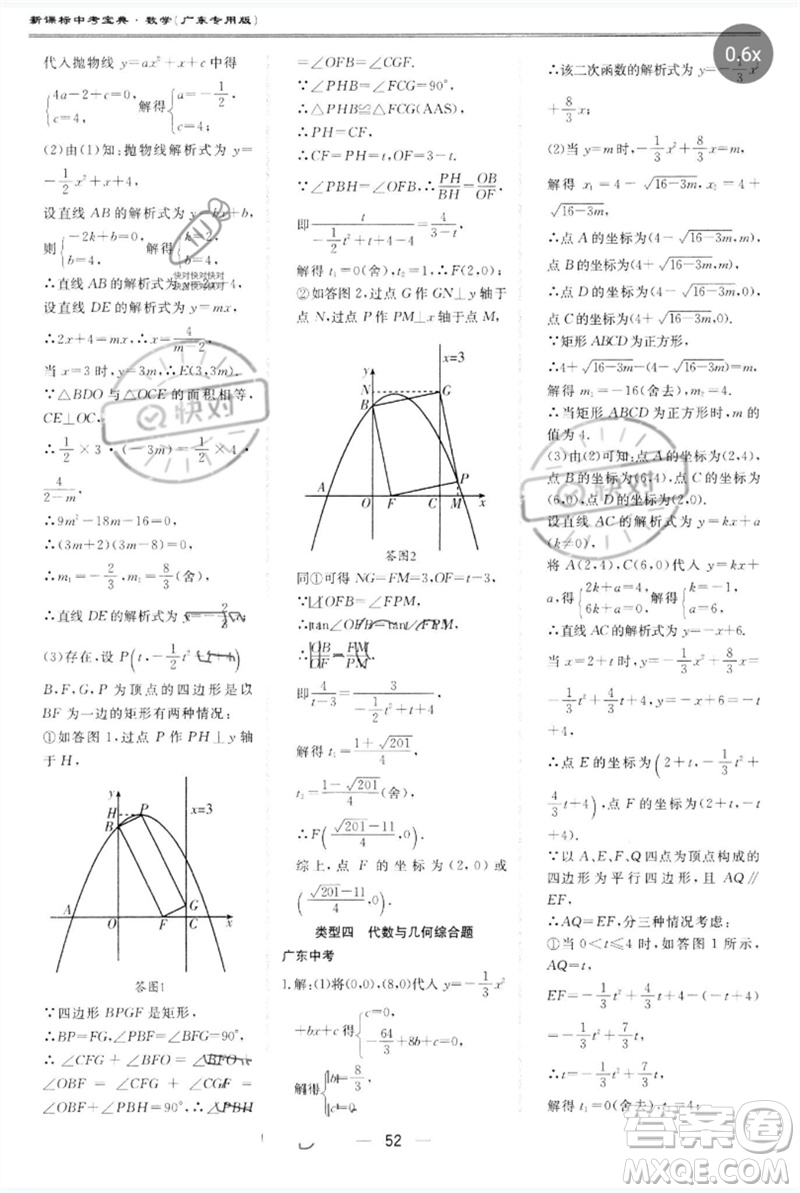 新课标中考宝典·数学(广东专用版)
0.6x
代入抛物线 y=ax²+x+c 中得
{4a-2+c=0, c=4, 解得{a=-1/2, c=4.
(2)由(1)知:抛物线解析式为 y=
-1/2x²+x+4,
设直线 AB 的解析式为 y=kx+b,
则{-2k+b=0, b=4, 解得{k=2, b=4.
∴直线 AB 的解析式为 y=2x+4,
设直线 DE 的解析式为 y=mx,
∴2x+4=mx,∴x=4/(m-2).
当 x=3 时,y=3m,∴E(3,3m).
∵△BDO 与△OCE 的面积相等,
CE⊥OC,
∴1/2×3·(-3m)=1/2×4·
4/(2-m),
∴9m²-18m-16=0,
∴(3m+2)(3m-8)=0,
∴m₁=-2/3,m₂=8/3(舍),
∴直线 DE 的解析式为 y=-2/3x.
(3)存在,设 P(t,-1/2t²+t+4),
B,F,G,P 为顶点的四边形是以
BF 为一边的矩形有两种情况:
①如答图 1,过点 P 作 PH⊥y 轴
于 H,
y
x=3
H
P
B
G
A
O
F
C
x
答图1
∵四边形 BPGF 是矩形,
∴BP=FG,∠PBF=∠BFG=90°,
∴∠CFG+∠BFO=∠BFO+
∠OBF=∠CFG+∠CGF=
∠OBF+∠PBH=90°,∴∠PBH
=∠OFB=∠CGF.
∵∠PHB=∠GCF=90°,
∴△PHB≌△FCG(AAS),
∴PH=CF,
∴CF=PH=t,OF=3-t.
∵∠PBH=∠OFB,∴PH/BH=OB/OF,
即t/(-1/2t²+t+4-4)=4/(3-t),
解得 t₁=0(舍),t₂=1,∴F(2,0),
②如答图 2,过点 G 作 GN⊥y 轴于
点 N,过点 P 作 PM⊥x 轴于点 M,
y
x=3
N
G
B
P
A
O
F
C
M
x
答图2
同①可得 NG=FM=3,OF=t-3,
∵∠OFB=∠FPM,
∴tan∠OFB=tan∠FPM,
∴OB/OF=FM/PM,
即4/(t-3)=3/(-1/2t²+t+4)
解得 t₁=(1+√201)/4,
t₂=(1-√201)/4(舍),
∴F((√201-11)/4,0).
综上,点 F 的坐标为(2,0)或
((√201-11)/4,0).
类型四 代数与几何综合题
广东中考
1.解:(1)将(0,0),(8,0)代入 y=-1/3x²
+bx+c 得{c=0, -64/3+8b+c=0,
解得{b=8/3, c=0.
∴该二次函数的解析式为 y=-1/3x²
+8/3x;
(2)当 y=m 时,-1/3x²+8/3x=m,
解得 x₁=4-√(16-3m),x₂=4+
√(16-3m),
∴点 A 的坐标为(4-√(16-3m),m),
点 B 的坐标为(4+√(16-3m),m),
∴点 D 的坐标为(4-√(16-3m),0),
点 C 的坐标为(4+√(16-3m),0).
∵矩形 ABCD 为正方形,
∴4+√(16-3m)-(4-√(16-3m))=m,
解得 m₁=-16(舍去),m₂=4.
∴当矩形 ABCD 为正方形时,m 的
值为 4.
(3)由(2)可知:点 A 的坐标为(2,4),
点 B 的坐标为(6,4),点 C 的坐标为
(6,0),点 D 的坐标为(2,0).
设直线 AC 的解析式为 y=kx+a
(k≠0),
将 A(2,4),C(6,0)代入 y=kx+
a,得{2k+a=4, 6k+a=0, 解得{k=-1, a=6,
∴直线 AC 的解析式为 y=-x+6.
当 x=2+t 时,y=-1/3x²+8/3x=
-1/3t²+4/3t+4,y=-x+6=-t
+4,
∴点 E 的坐标为(2+t,-1/3t²+
4/3t+4),点 F 的坐标为(2+t,
-t+4).
∵以 A、E、F、Q 四点为顶点构成的
四边形为平行四边形,且 AQ∥
EF,
∴AQ=EF,分三种情况考虑:
①当 0<t≤4 时,如答图 1 所示,
AQ=t,
EF=-1/3t²+4/3t+4-(-t+4)
=-1/3t²+7/3t,
∴t=-1/3t²+7/3t,
解得 t₁=0(舍去),t₂=4;
52
快对
快对快对快对
快对快对快对
答案圈
MXQE.COM